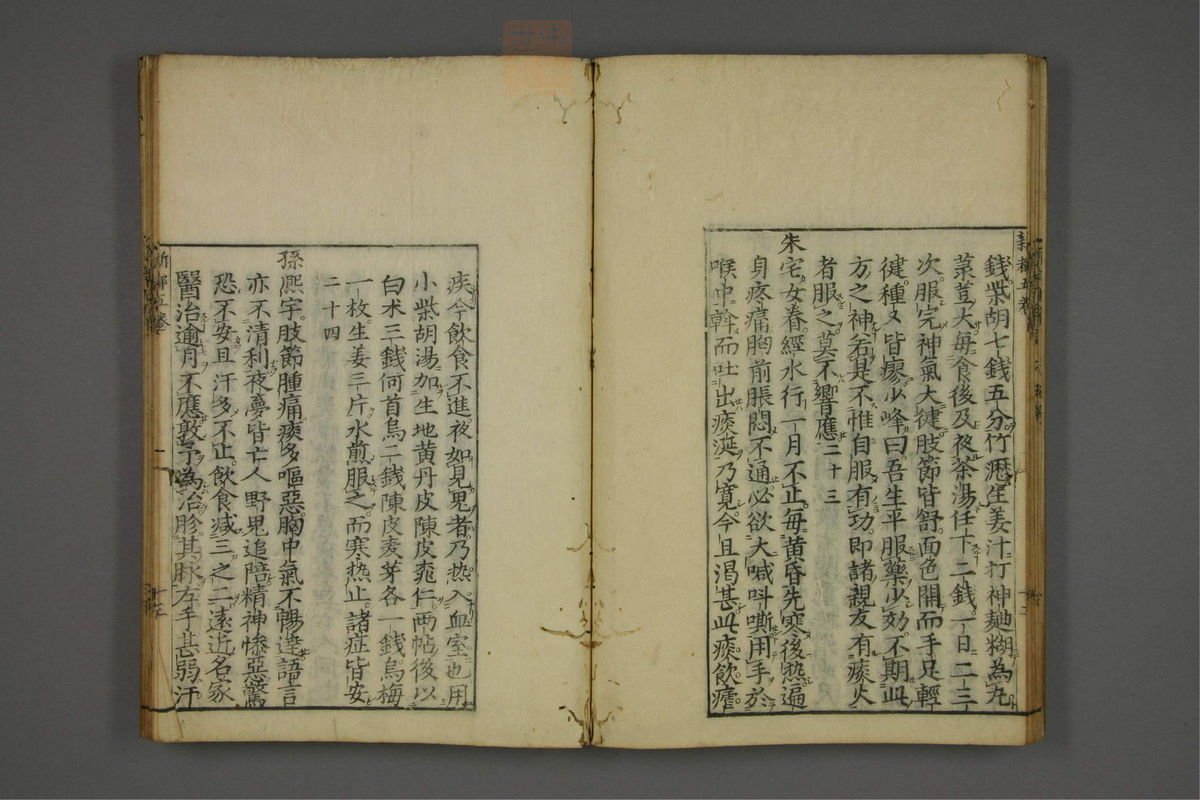 錢柴胡七錢五分竹瀝生姜汁打神麯糊為丸
菉荳大每食後及夜茶湯任下二錢一日二三
次服完神氣大徤肢節皆舒面色開而手足輕
徤種又皆瘳少峰曰吾生平服藥少効不期此
方之神若是不惟自服有功即諸親友有痰火
者服之莫不響應二十三
朱宅女眷經水行一月不止每黃昏先寒後热遍
身疼痛胸前脹悶不通必欲大喊呌嘶用手於
喉中斡而吐出痰涎乃寬今且渴甚此痰飲瘧
疾今飲食不進夜如見鬼者乃热入血室也用
小柴胡湯加生地黄丹皮陳皮桃仁两帖後以
白术三錢何首烏二錢陳皮麦芽各一錢烏梅
一枚生姜三片水煎服之而寒热止諸症皆安
二十四
孫熈宇肢節腫痛痰多嘔惡胸中氣不暢達語言
亦不清利夜夢皆亡人野鬼追陪精神慘惡驚
恐不安且汗多不止飲食减三之二遠近名家
醫治逾月不應敦予為治胗其脉左手甚弱汗